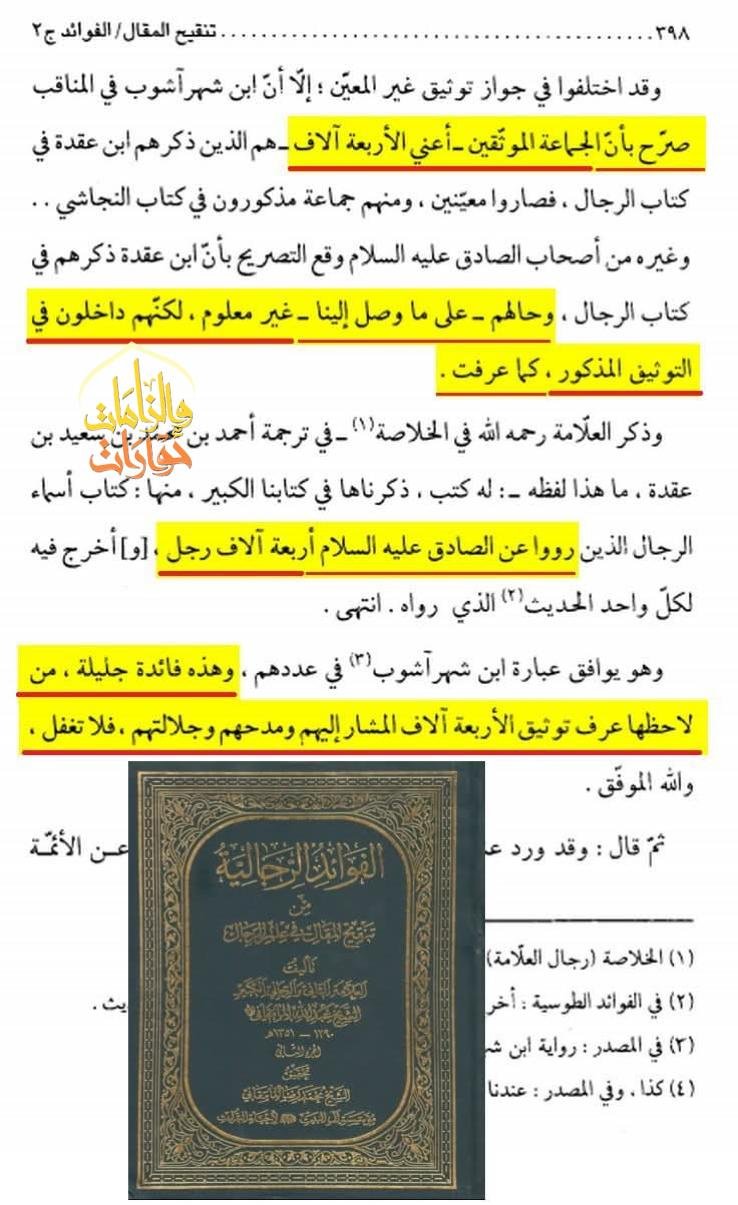 ٣٩٨ ........................................ تنقيح المقال/ الفوائد ج٢
وقد اختلفوا في جواز توثيق غير المعيّن ؛ إلّا أنّ ابن شهرآشوب في المناقب
صرّح بأنّ الجماعة الموثّقين ـ أعني الأربعة آلاف ـ هم الذين ذكرهم ابن عقدة في
كتاب الرجال ، فصاروا معيّنين ، ومنهم جماعة مذكورون في كتاب النجاشي ..
وغيره من أصحاب الصادق عليه السلام وقع التصريح بأنّ ابن عقدة ذكرهم في
كتاب الرجال ، وحالهم ـ على ما وصل إلينا ـ غير معلوم ، لكنّهم داخلون في
التوثيق المذكور ، كما عرفت .
وذكر العلّامة رحمه الله في الخلاصة(١) ـ في ترجمة أحمد بن محمد بن سعيد بن
عقدة ، ما هذا لفظه ـ : له كتب ، ذكرناها في كتابنا الكبير ، منها : كتاب أسماء
الرجال الذين رووا عن الصادق عليه السلام أربعة آلاف رجل ، [و] أخرج فيه
لكلّ واحد الحديث(٢) الذي رواه . انتهى .
وهو يوافق عبارة ابن شهرآشوب(٣) في عددهم ، وهذه فائدة جليلة ، من
لاحظها عرف توثيق الأربعة آلاف المشار إليهم ومدحهم وجلالتهم ، فلا تغفل ،
والله الموفّق .
ثمّ قال : وقد ورد عـ عـن الأئمّـة
(١) الخلاصة (رجال العلّامة)
(٢) في الفوائد الطوسية : أخر يث .
(٣) في المصدر : رواية ابن شـ
(٤) كذا ، وفي المصدر : عندنا
الفوائد الرجالية
من
تنقيح المقال في علم الرجال
تأليف
العلامة الثاني والرجالي الكبير
الشيخ عبد الله المامقاني
١٢٩٠ ـ ١٣٥١ هـ
الجزء الثاني
تحقيق
الشيخ محمد رضا المامقاني
مؤسسة آل البيت لإحياء التراث